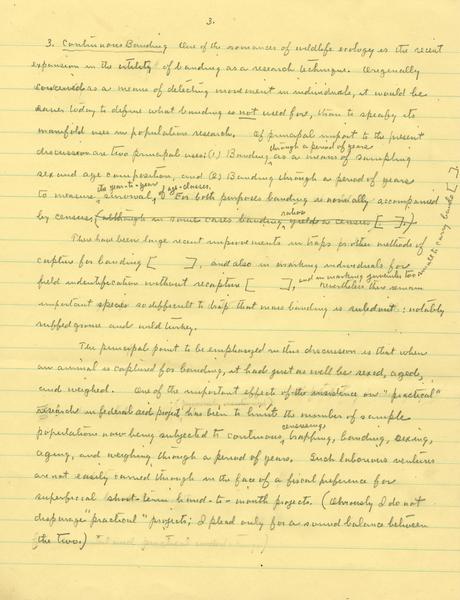 3.
3. Continuous Banding One of the romances of wildlife ecology is the recent
expansion in the utility of banding as a research technique. Originally
conceived as a means of detecting movement in individuals, it would be
easier today to define what banding is not used for, than to specify its
manifold uses in population research. Of principal import to the present
discussion are two principal uses: (1) Banding through a period of years as a means of sampling
sex and age composition, and (2) Banding through a period of years
to measure the year-to-year survival of age-classes. For both purposes banding is normally accompanied
by census, (although in some cases banding ratios yields a census [ ].)
There have been large recent improvements in traps or other methods of
capture for banding [ ], and also in marking individuals for
field indentification without recapture [ ], and in marking juveniles too small to carry bands [ ]
nevertheless there remain
important species so difficult to trap that mass banding is : notably
ruffed grouse and wild turkey.
The principal point to be emphasized in this discussion is that when
an animal is captured for banding, it had just as well be sexed, aged,
and weighed. One of the important effects of the insistence on "practical"
research in federal aid projects has been to limit the number of sample
populations now being subjected to continuous censusing, trapping, banding, sexing,
aging, and weighing through a period of years. Such laborious ventures
are not easily carried through in the face of a fiscal preference for
superficial short-term hand-to-mouth projects. (Obviously I do not
disparage "practical" projects; I plead only for a sound balance between
the two.)